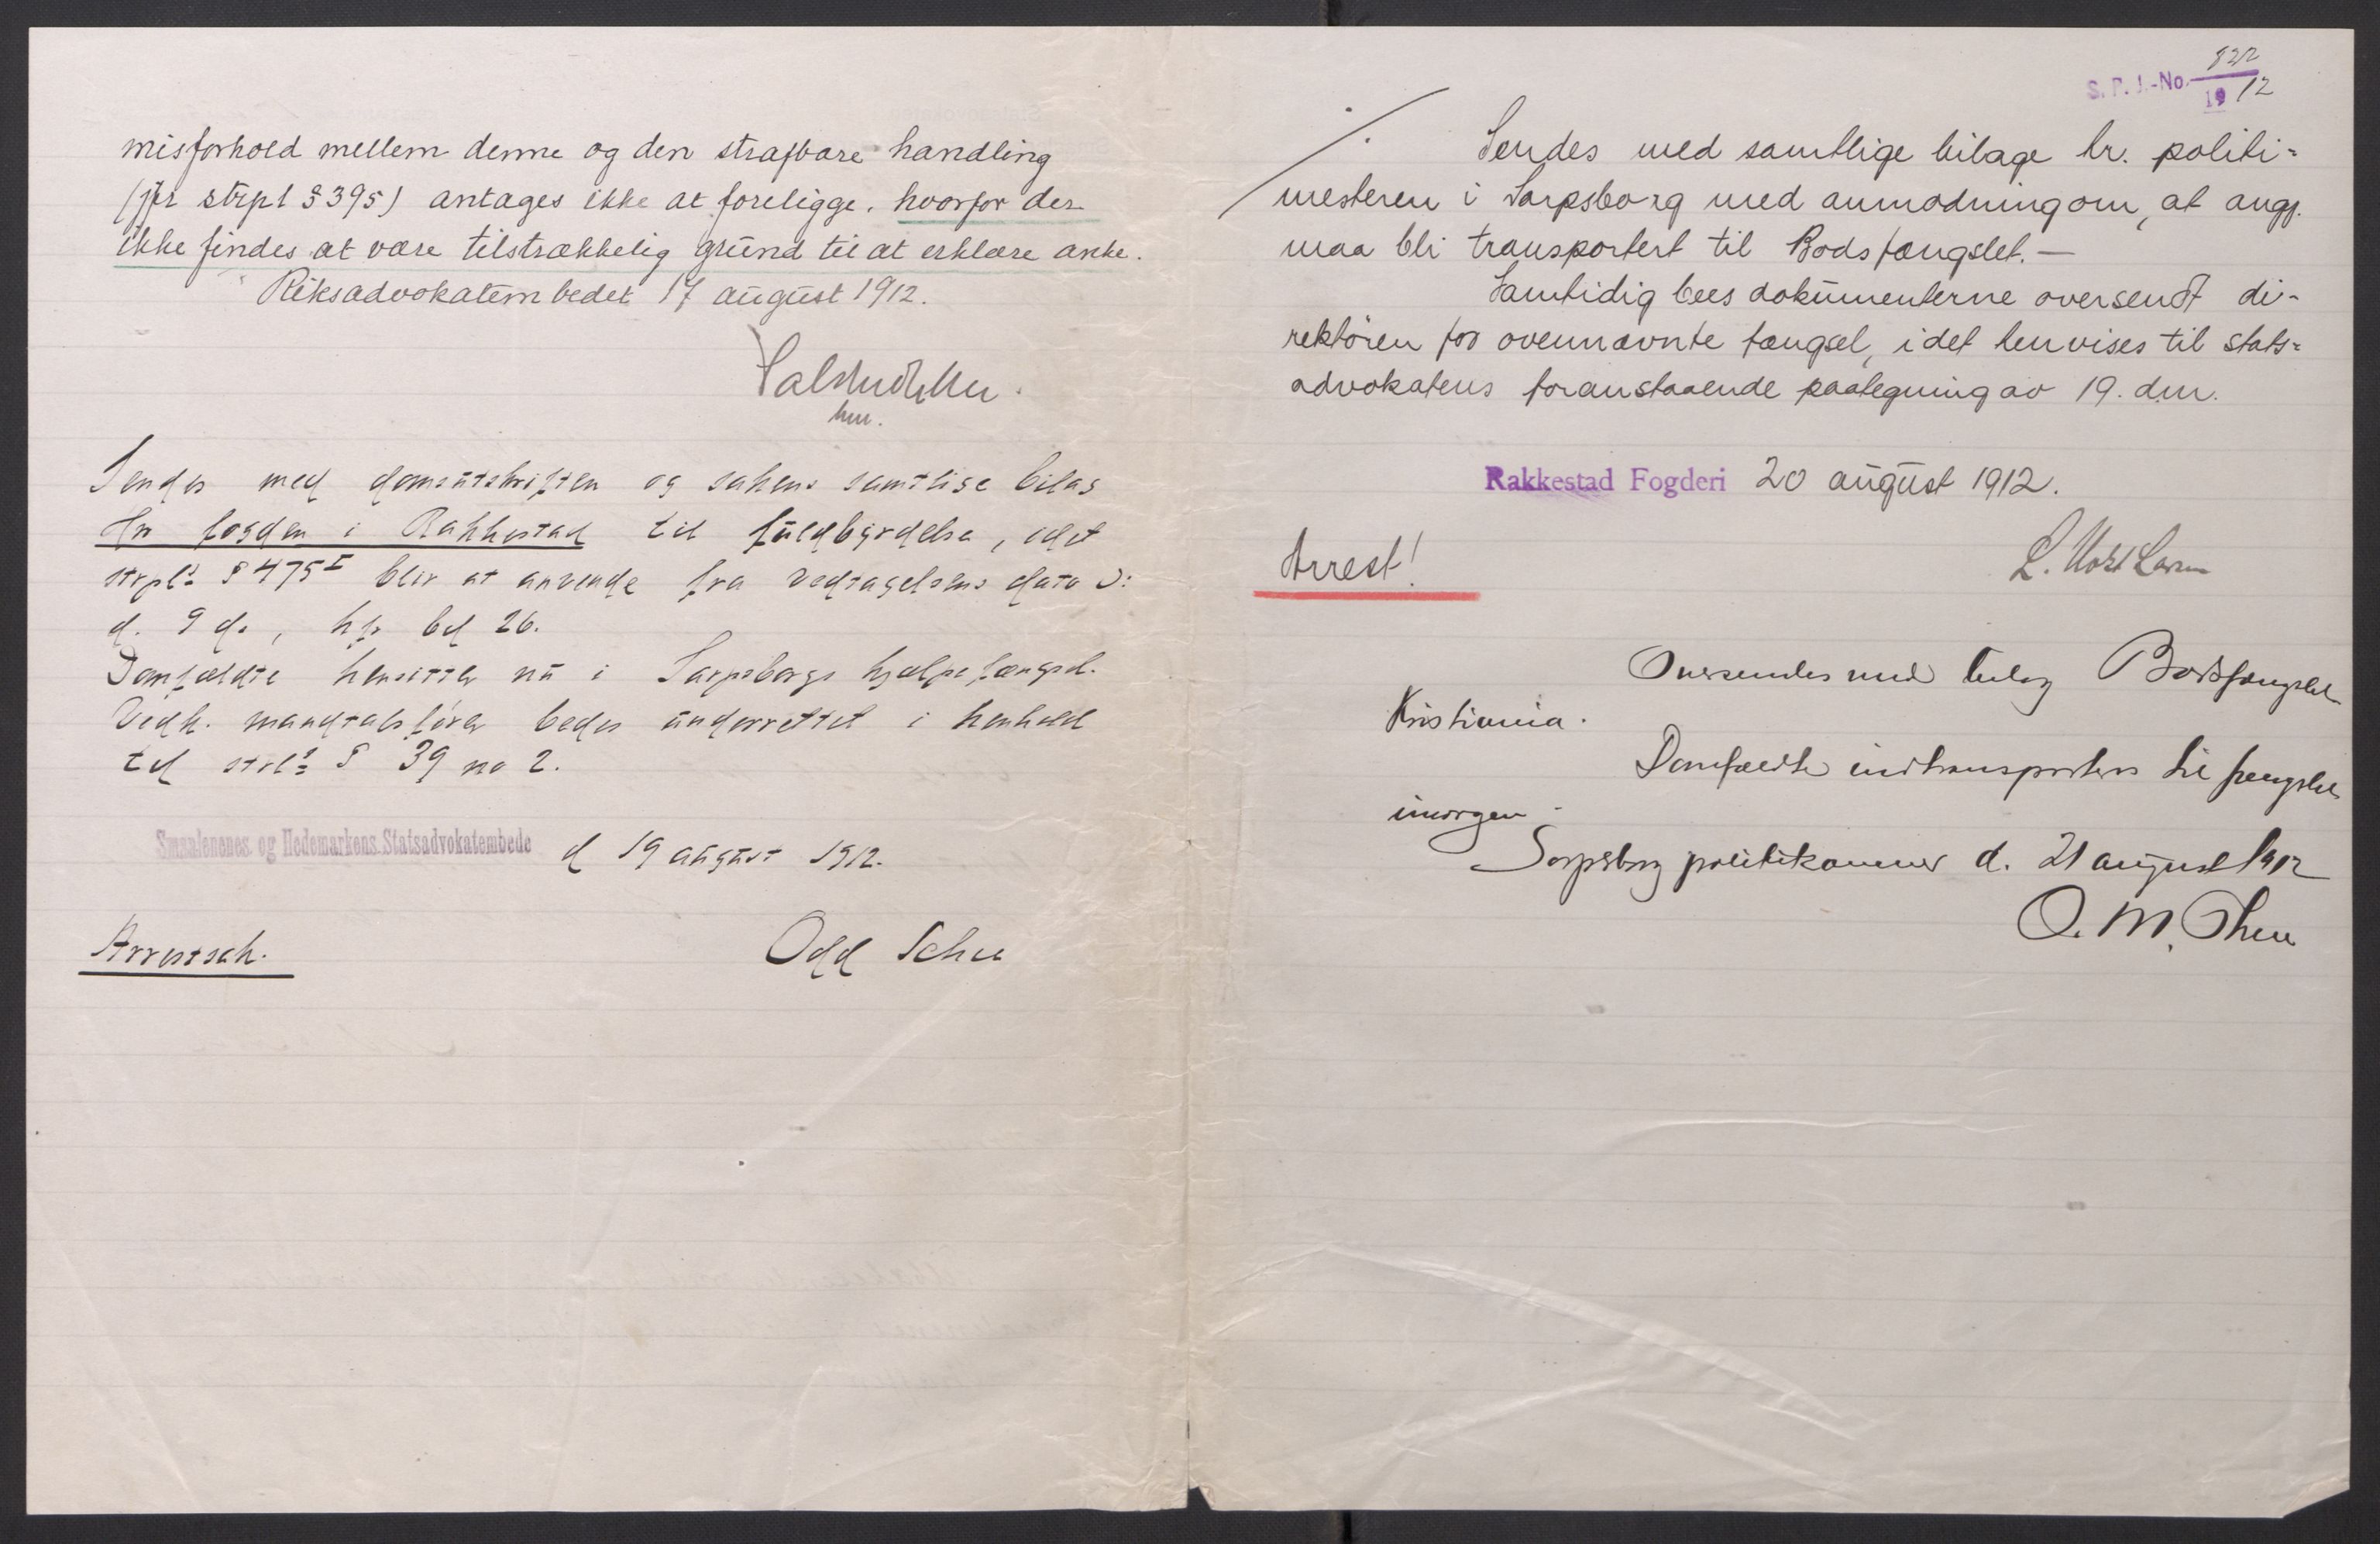 misforhold mellem denne og den strafbare handling
(jfr strpl § 395) antages ikke at foreligge, hvorfor der
ikke findes at være tilstrækkelig grund til at erklære anke.
Riksadvokatembedet 17 august 1912.
hm.
Sendes med domsutskriften og sakens samtlige bilag
Hr fogden i Rakkestad til fuldbyrdelse, idet
strpl.s § 475 I blir at anvende fra vedtagelsens dato ɔ:
d. 9 ds, jfr bl 26.
Domfældte hensitter nu i Sarpsborgs hjælpefængsel.
Vedk. mandtalsfører bedes underrettet i henhold
til strl.s § 39 no 2.
Smaalenenes og Hedemarkens Statsadvokatembede d 19 august 1912.
Arrestsak.
Odd
S. P. J.-No. 822/1912
Sendes med samtlige bilage hr. politi=
mesteren i Sarpsborg med anmodning om, at angj.
maa bli transportert til Bodsfængslet.—
Samtidig bees dokumenterne oversendt di-
rektören for ovennævnte fængsel, idet henvises til stats=
advokatens foranstaaende paategning av 19. dm.
Rakkestad Fogderi 20 august 1912.
Arrest!
L.
Oversendes med bilag Bodsfængslet
Kristiania.
Domfældte indtransporteres til fængslet
imorgen.
Sarpsborg politikammer d. 21 august 1912
O. M.